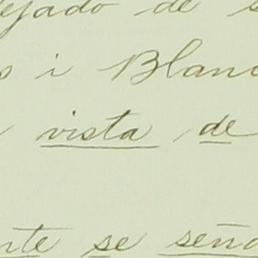 ejado de s
s i Blanc
vista de
nte se seño